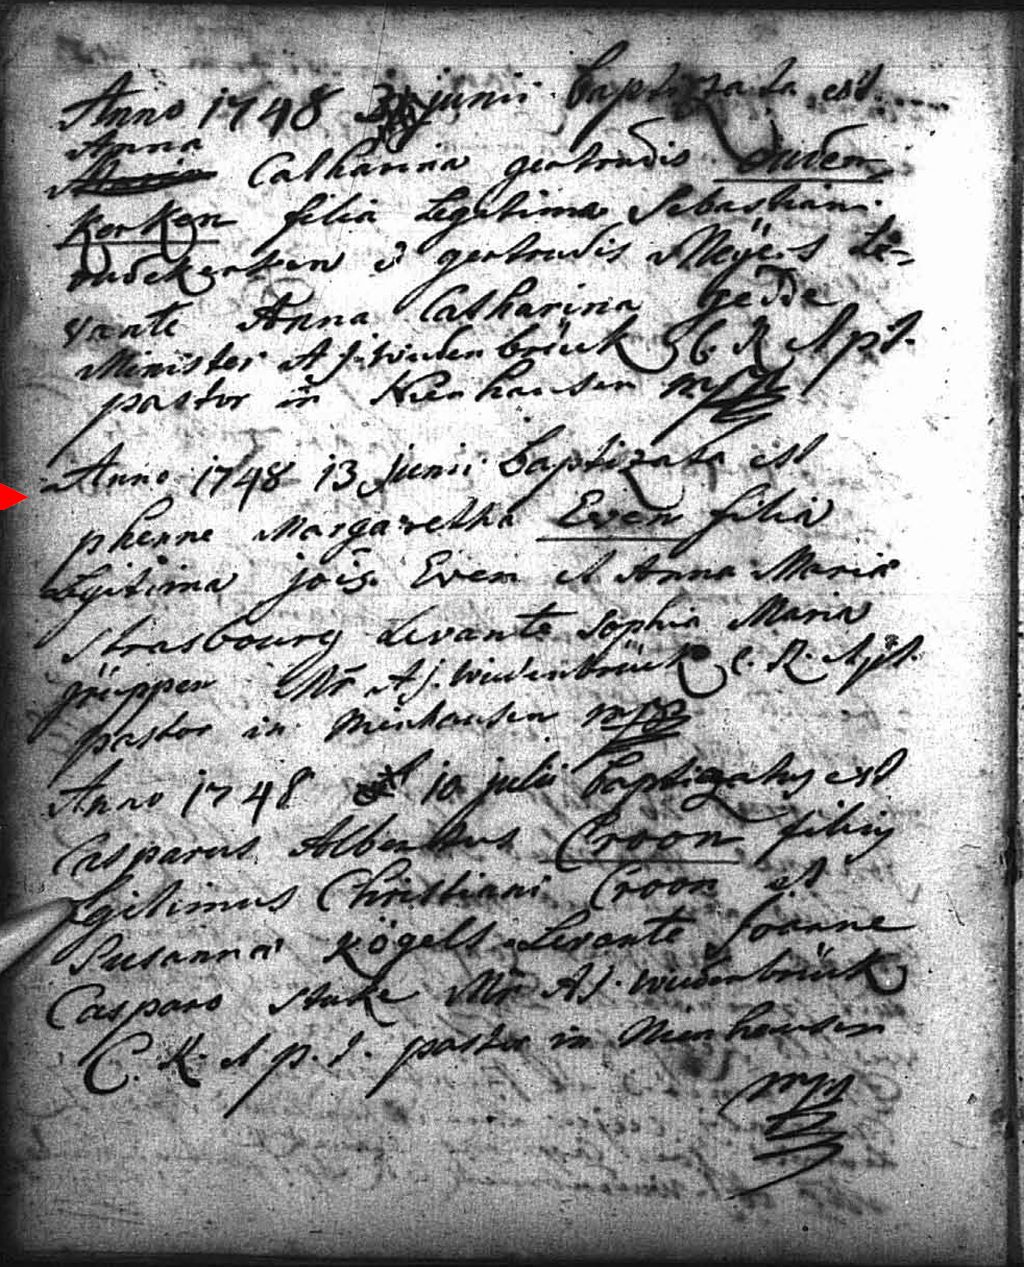 Anno 1748 3 junii baptizata est
Anna
Maria Catharina gertrudis ouden
Kerken filia Legitima Sebastiani
oudekerken & gertrudis Meÿers Le-
vante Anna Catharina hedde
Minister A J. wiedenbrück C. R. A p t.
pastor in Nienhausen mpp
Anno 1748 13 junii baptizata est
phenne Margaretha Even filia
Legitima jois. Even et Anna Maria
Strasbourg Levante Sophia Maria
grüppen Mr A J. wiedenbrück C. R. A p t.
pastor in Nienhausen mpp
Anno 1748 10 julii baptizatus est
Casparus Albertus Croon filius
Legitimus Christiani Croon et
Susanna Kögels Levante Joanne
Casparo Stuke Mr A J. wiedenbrück
C. R. A p. t. pastor in Nienhausen
mpp